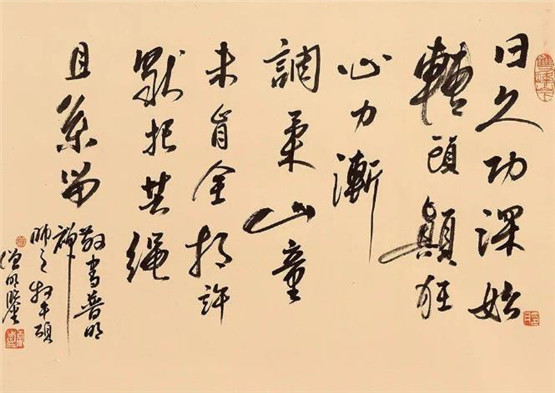 日久功深始
轉頭顛狂
心力漸
調柔山童
未肯全相許
猶把芒繩
且系留
敬書普明
禪
師之牧牛頌
僧明鑒